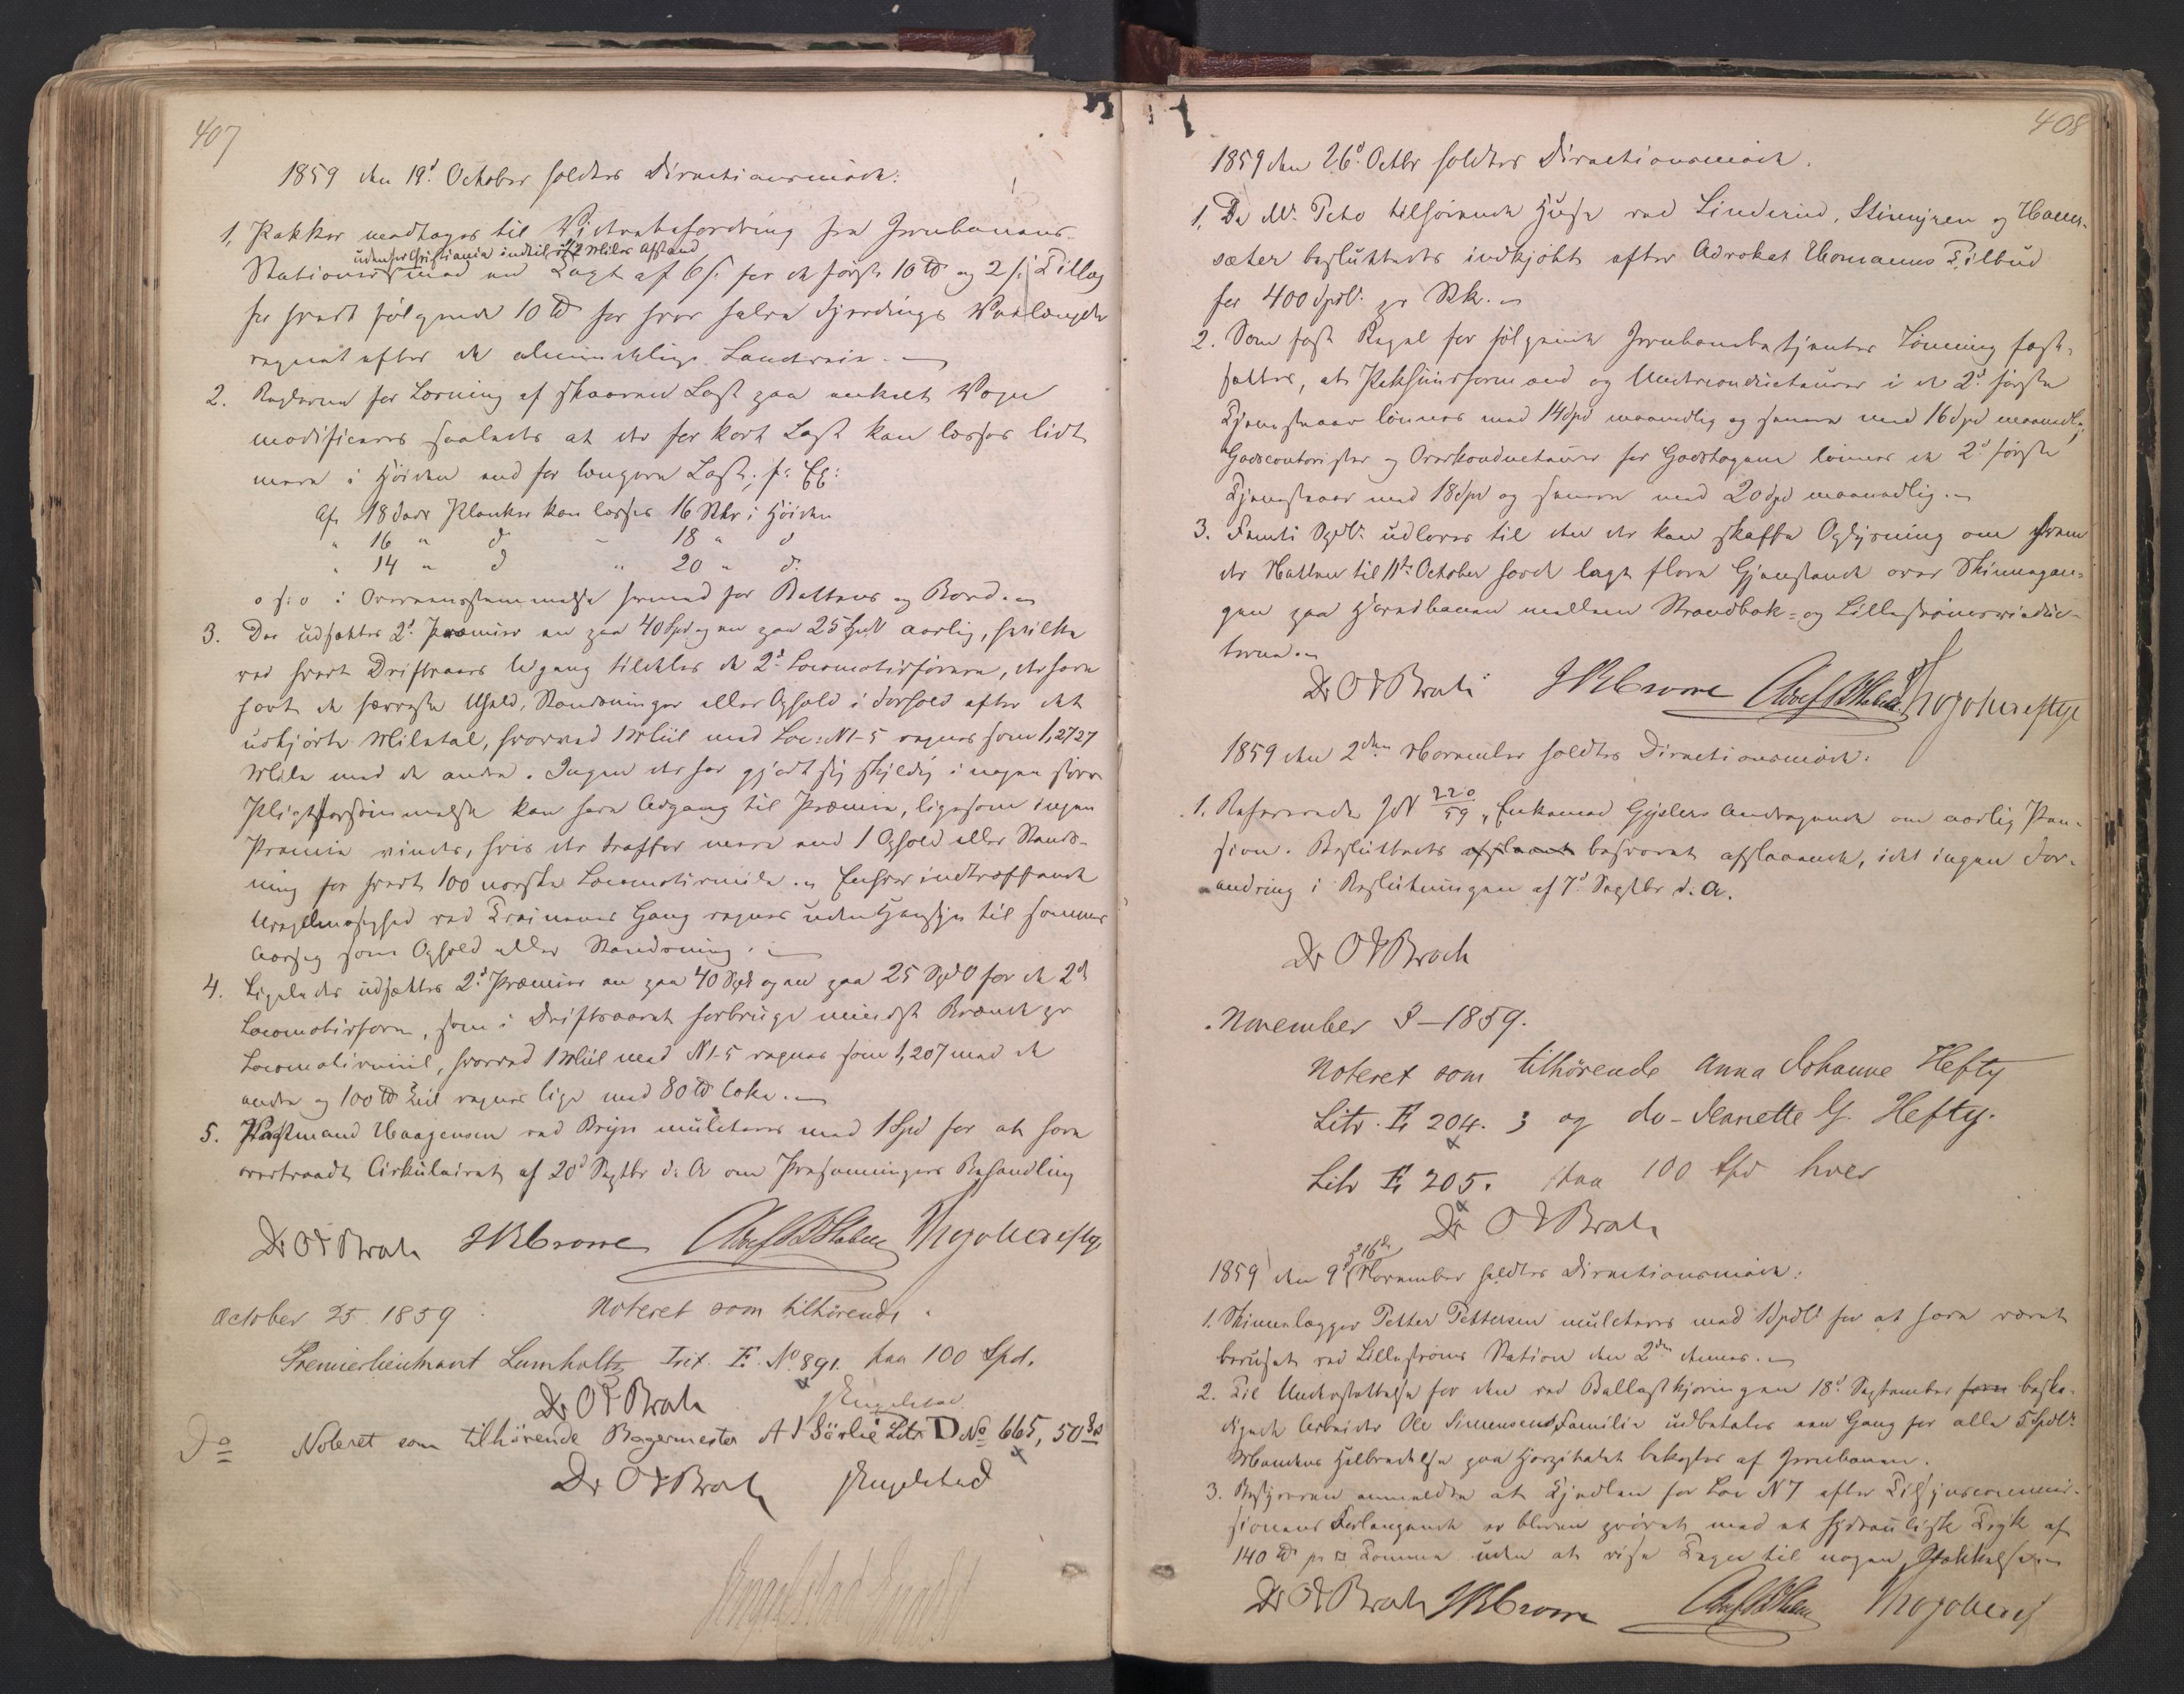 407
1859 den 19d October holdtes Directionsmöde:
1, Pakker modtages til Viderebefordring fra Jernbanens
udenfor Christiania indtil 1/2 Miles Afstand
Stationer mod en Tagt af 6 s. for de første 10 ℔ og 2 s. Tillæg
for hvert følgende 10 ℔ for hver halve Fjerdings Veilængde
regnet efter de almindelige Landveie.
2. Reglerne for Læsning af skaaren Last paa enkelt Vogn
modificeres saaledes at der for kort Last kan læsses lidt
mere i Høiden end for længere Last; f: Ex:
Af 18 Fods Planker kan læsses 16 Stkr i Høiden
" 16 " d - 18 " d
" 14 " d " 20 " d.
o s: v i Overeensstemmelse hermed for Battens og Bord.
3. Der udsættes 2d Præmier en paa 40 Spd og en paa 25 Spd aarlig, hvilke
ved hvert Driftsaars Udgang tildeles de 2d Locomotivførere, der have
havt de færreste Uheld, Standsninger eller Ophold i Forhold efter det
udkjørte Miletal, hvorved 1 Miil med Loc: N 1-5 regnes som 1,2727
Mile med de andre. Ingen der har gjort sig skyldig i nogen større
Pligtforsømmelse kan have Adgang til Præmie, ligesom ingen
Præmie vindes, hvis der træffer mere end 1 Ophold eller Stands-
ning for hvert 100 norske Locomotivmile. Enhver indtræffende
Uregelmæsighed ved Trainenes Gang regnes uden Hensyn til sammes
Aarsag som Ophold eller Standsning.
4. Ligeledes udsættes 2d Præmier en paa 40 Spd og en paa 25 Spd for de 2de
Locomotivførere, som i Driftsaaret forbruge mindst Brænde pr
Locomotivmiil, hvorved 1 Miil med N 1-5 regnes som 1,207 med de
andre og 100 ℔ Kul regnes lige med 80 ℔ Coke.
5. Pladsmand Haagensen ved Bryn mulcteres med 1 Spd for at have
overtraadt Cirkulairet af 20d Septbr d: A om Presenningers Behandling
Dr O J Broch JRCrowe Thos Joh Heftye
October 25. 1859 : Noteret som tilhørende.
Premierlieutnant Lumholtz Litr. E. No 891. paa 100 Spd.
Dr O J Broch JEngelstad
Do Noteret som tilhørende Bagermester A J Sörlie Litr D No 665, 50 Spd
Dr O J Broch JEngelstad
408
1859 den 26d Octbr holdtes Directionsmöde.
1. De Mr. Peto tilhørende Huse ved Linderud, Stenyren og Haner-
sæter besluttedes indkjøbte efter Advokat Homanns Tilbud
for 400 Spdl. pr Stk.
2. Som fast Regel for følgende Jernbanebetjentes Lønning fast-
sættes, at Pakhuusformænd og Underconducteurer i de 2d første
Tjenesteaar lønnes med 14 Spd maanedlig og senere med 16 Spd maanedlig
Godscontorister og Overkonducteurer for Godstogene lønnes de 2d første
Tjenesteaar med 18 Spd og senere med 20 Spd maanedlig.
3. Femti Spdl. udloves til den der kan skaffe Oplysning om hvem
der Natten til 11te October havde lagt flere Gjenstande over Skinnegan-
gen paa Hovedbanen mellem Strandbak- og Lillestrømsviaduc-
terne.
Dr O J Broch JRCrowe Thos Joh Heftye
1859 den 2den November holdtes Directionsmöde:
1. Refereredes JN 220/59, Enkemad Gyslers Andragende om aarlig Pen-
sion. Besluttedes afslaaet besvaret afslaaende, idet ingen For-
andring i Beslutningen af 7d Septbr d. A.
Dr O J Broch
November 8-1859.
Noteret som tilhörende Anna Johanne Hefty
Litr. E 204. 3 og do-Nanette G. Hefty.
Litr E 205. paa 100 Spd hver
Dr O J Broch
1859 den 9d 16de November holdtes Directionsmöde:
1. Skinnelægger Petter Pettersen mulcteres med 1 Spdl for at have været
beruset ved Lillestrøms Station den 2den dennes.
2. Til Understøttelse for den ved Ballastkjøringen 18d September beska-
digede Arbeider Ole Simensens Familie udbetales een Gang for alle 5 Spdlr
Mandens Helbredelse paa Hospitalet bekostes af Jernbanen.
3. Bestyreren anmeldte at Kjedlen for Loc N 7 efter Tilsynscommis-
sionens Forlangende er bleven prøvet med et hydraulisk Tryk af
140 ℔ pr □ Tomme uden at vise Tegn til nogen Skakkelse.
Dr O J Broch JRCrowe Thos Joh Hefty